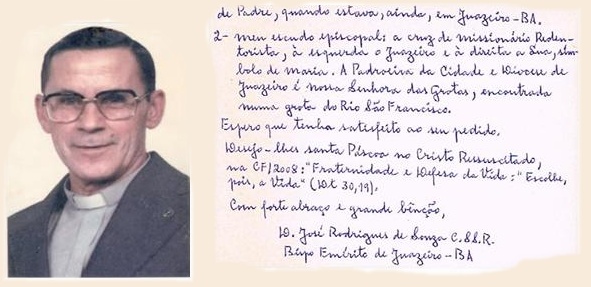 de Padre, quando estava, ainda, em Juazeiro-BA.
2- meu escudo episcopal: a cruz de missionário Reden-
torista, à esquerda o Juazeiro e à direita a Lua, sím-
bolo de Maria. A Padroeira da Cidade e Diocese de
Juazeiro é nossa Senhora das Grotas, encontrada
numa grota do Rio São Francisco.
Espero que tenha satisfeito ao seu pedido.
Desejo-lhes santa Páscoa no Cristo Ressuscitado,
na CF/2008: "Fraternidade e Defesa da Vida: "Escolhe,
pois, a Vida" (Dt 30,19).
Com forte abraço e grande bênção,
D. José Rodrigues de Souza C.SS.R.
Bispo Emérito de Juazeiro-BA